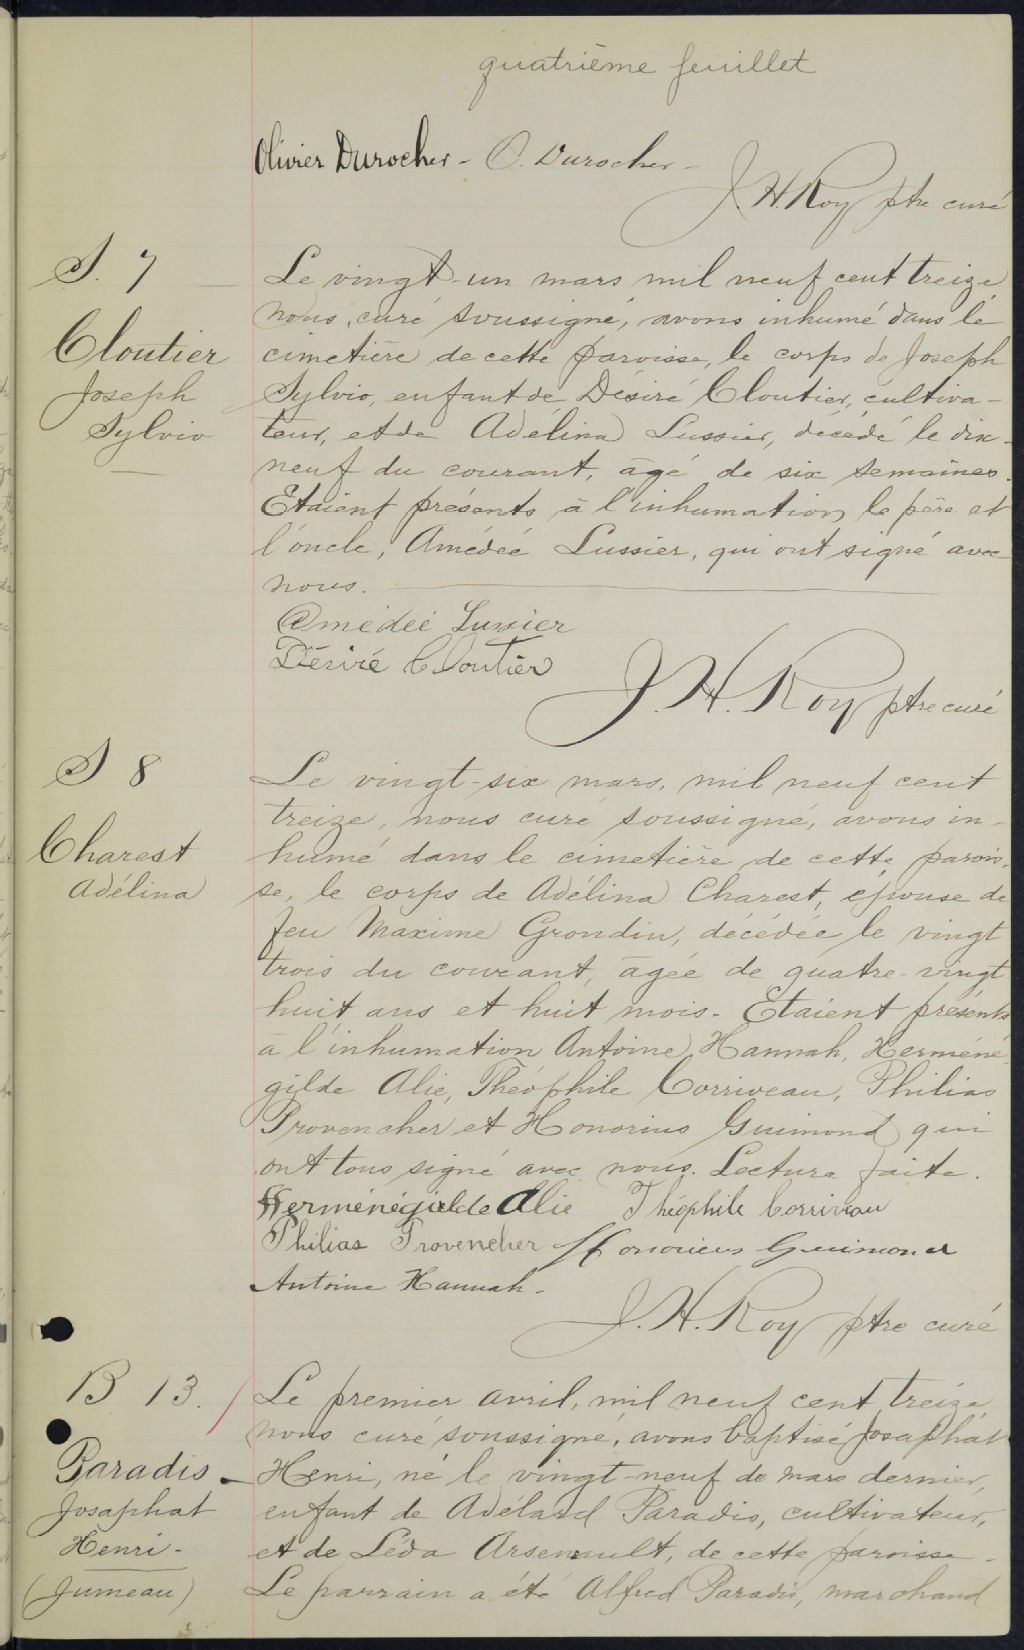 quatrième feuillet
Olivier Durocher - O. Durocher -
J. H. Roy ptre curé
S. 7
Cloutier
Joseph
Sylvio
Le vingt-un mars mil neuf cent treize
nous, curé soussigné, avons inhumé dans le
cimetière de cette paroisse, le corps de Joseph
Sylvio, enfant de Désiré Cloutier, cultiva-
teur, et de Adélina Lussier, décédé le dix-
neuf du courant, âgé de six semaines.
Etaient présents à l'inhumation le père et
l'oncle, Amédée Lussier, qui ont signé avec
nous.
Amédée Lussier
Désiré Cloutier
J. H. Roy ptre curé
S 8
Charest
Adélina
Le vingt-six mars, mil neuf cent
treize, nous curé soussigné, avons in-
humé dans le cimetière de cette parois-
se, le corps de Adélina Charest, épouse de
feu Maxime Grondin, décédée le vingt
trois du courant, âgée de quatre-vingt
huit ans et huit mois. Etaient présents
à l'inhumation Antoine Hannah, Herméné-
gilde Alie, Théophile Corriveau, Philias
Provencher et Honorius Guimond qui
ont tous signé avec nous. Lecture faite.
Herménégilde Alie Théophile Corriveau
Philias Provencher Honorius Guimond
Antoine Hannah -
J. H. Roy ptre curé
B 13.
Paradis -
Josaphat
Henri -
(Jumeau)
Le premier avril, mil neuf cent treize
nous curé soussigné, avons baptisé Josaphat
Henri, né le vingt-neuf de mars dernier,
enfant de Adélard Paradis, cultivateur,
et de Léda Arsenault, de cette paroisse -
Le parrain a été Alfred Paradis, marchand